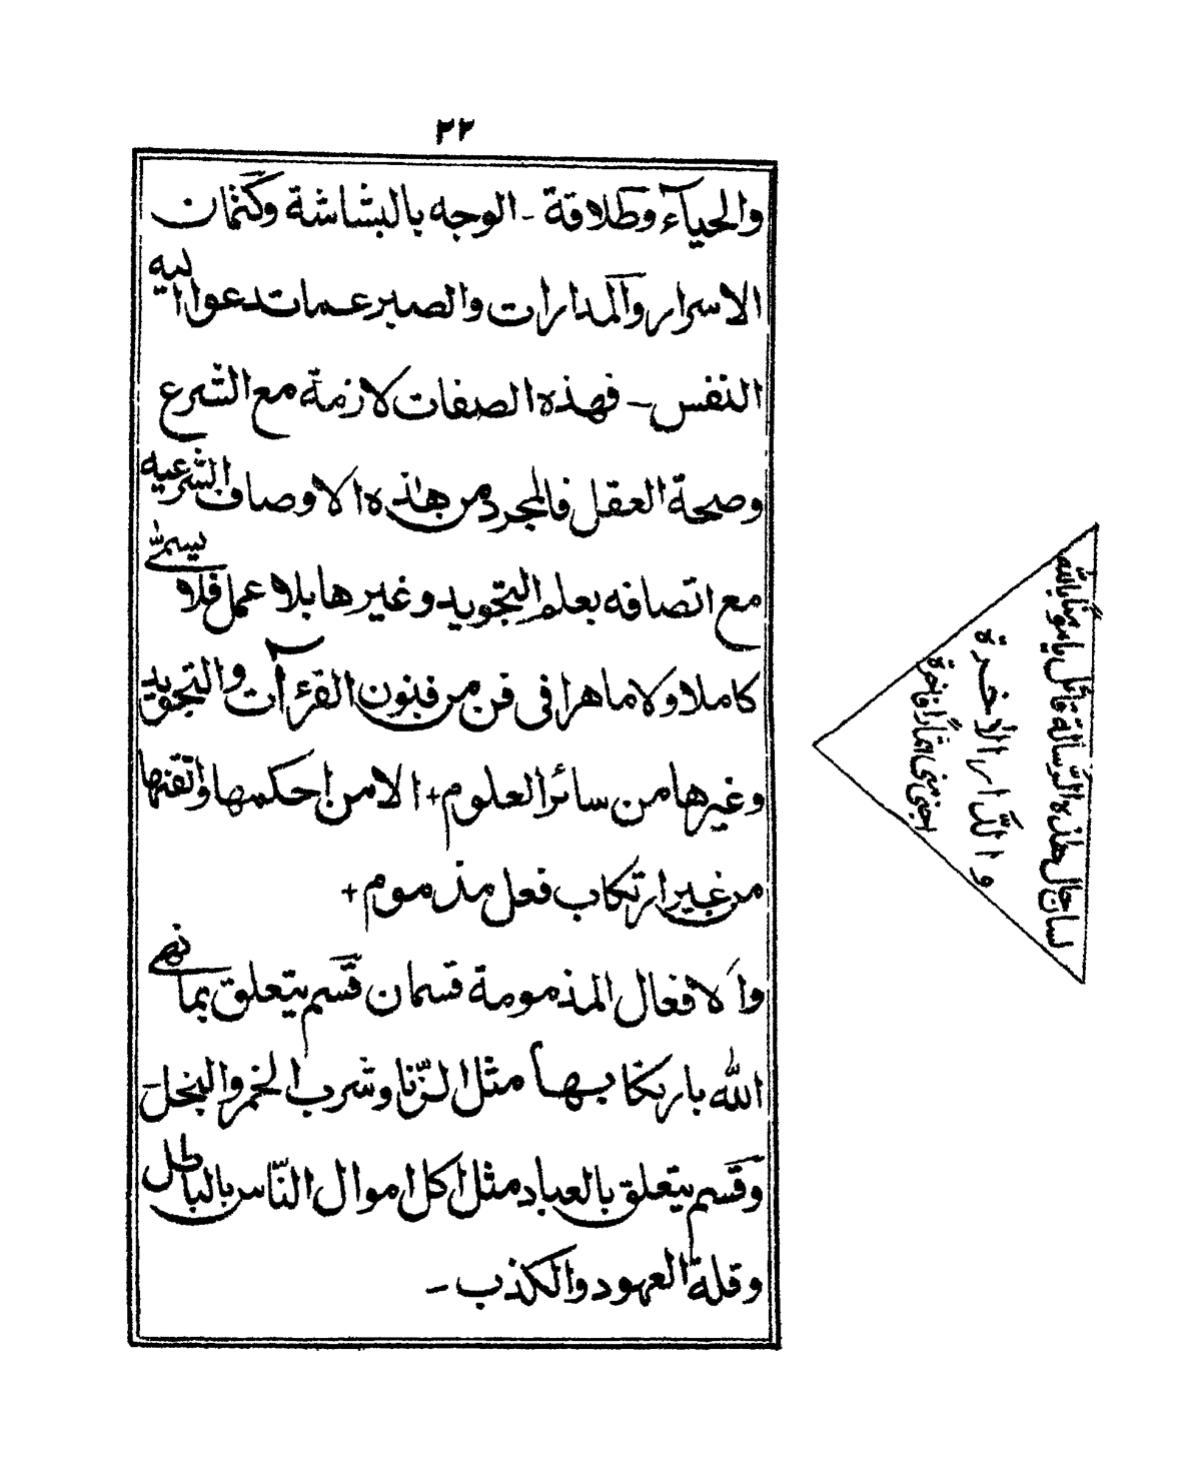 ٢٢
والحيآء وطلاقة - الوجه بالبشاشة وكتمان
الاسرار والمدارات والصبر عما تدعوا اليه
النفس - فهذه الصفات لازمة مع الشرع
وصحة العقل فالمجرد من هٰذه الاوصاف الشرعيه
مع اتصافه بعلم التجويد وغيرها بلا عمل فلا يسمىّٰ
كاملا ولا ماهرا فى فن من فنون القرءآت والتجويد
وغيرها من سائر العلوم + الا من احكمها واتقنها
من غير ارتكاب فعل مذموم +
والافعال المذمومة قسمان قسم يتعلق بما نهى
الله بارتكابها مثل الزّنا وشرب الخمر والبخل -
وقسم يتعلق بالعباد مثل اكل اموال النّاس بالباطل
وقلة العهود والكذب -
لسان حال هٰذه الرّسالة قائل يا مومنًا بالله
والدّار الاخرة
اجنى منى اثمارًا فاخرة